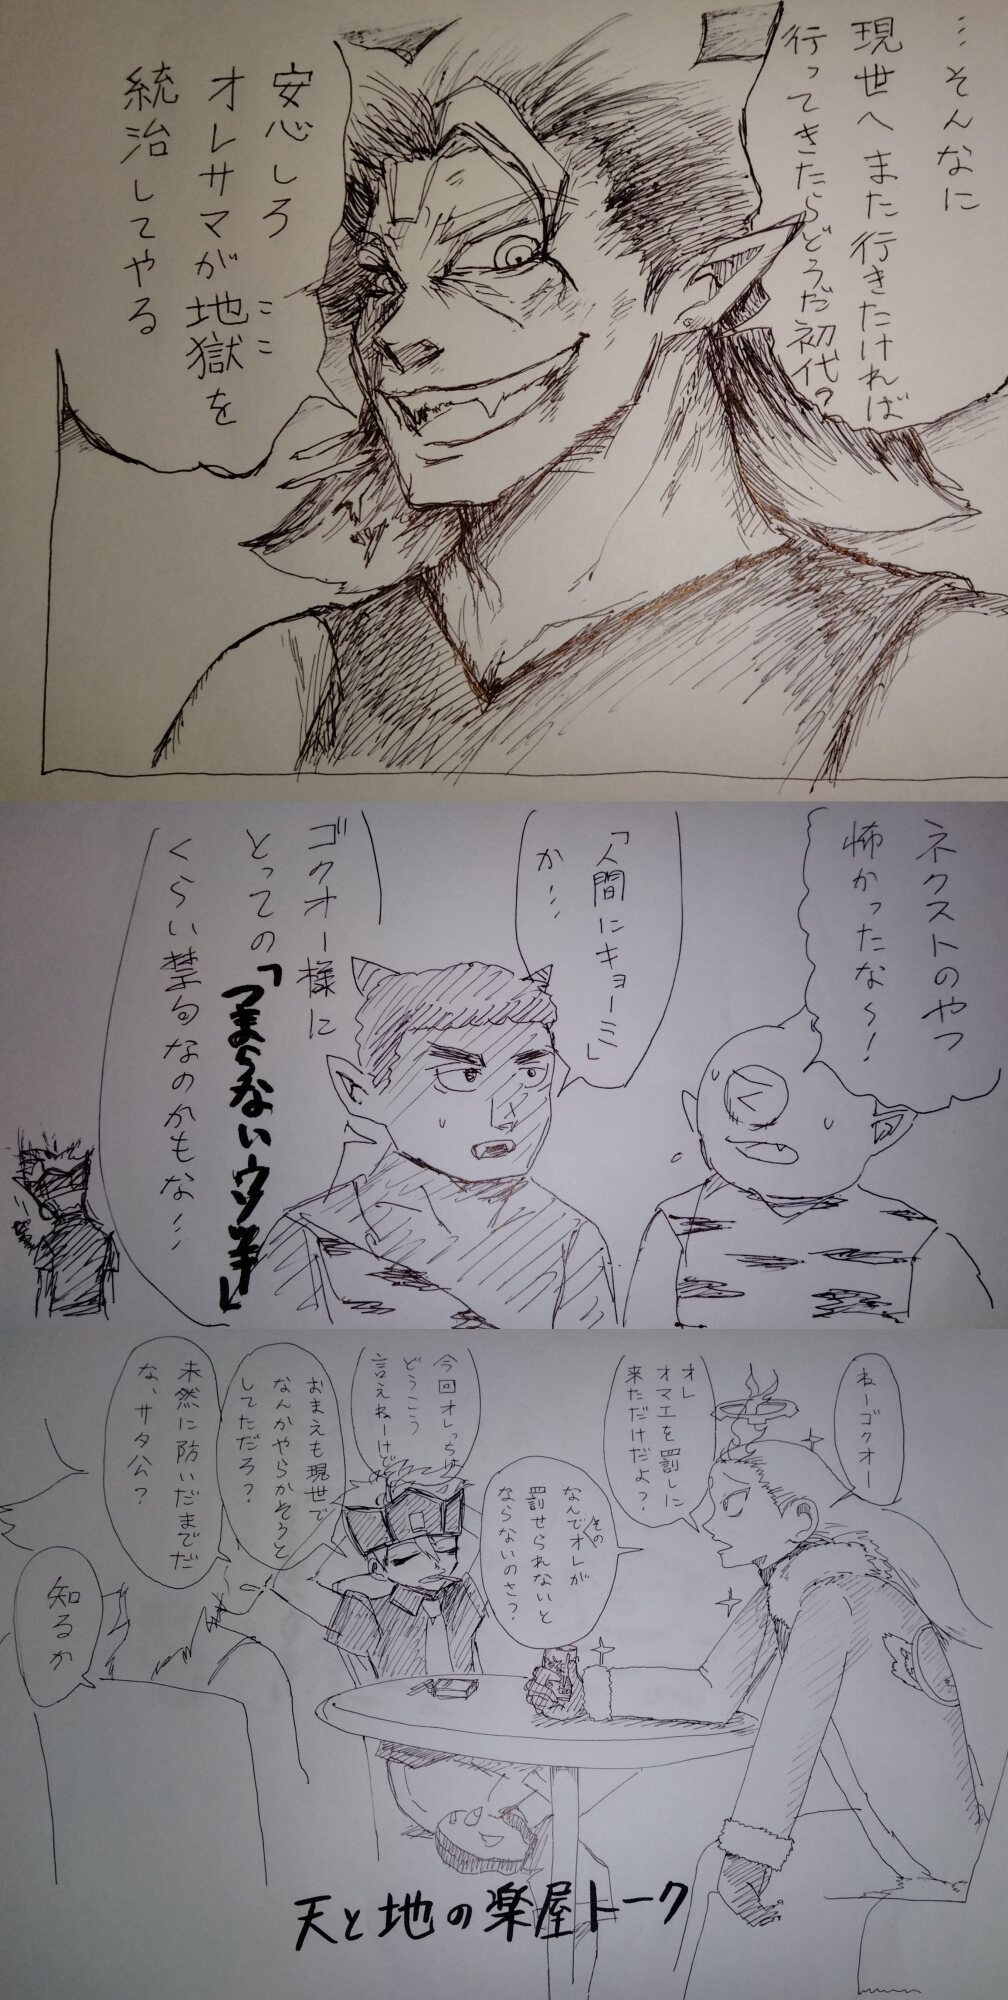 …そんなに
現世へまた行きたければ
行ってきたらどうだ初代？
安心しろ
オレサマが地獄を
ここ
統治してやる
ネクストのやつ
怖かったな〜！
「人間にキョーミ」
か…
ゴクオー様に
とっての「つまらないウソ」
くらい禁句なのかもな…
ねーゴクオー
オレ
オマエを罰しに
来ただけだよ？
なんでオレが
その
罰せられないと
ならないのさ？
今回オレっちは
どうこう
言えねーけど
おまえも現世で
なんかやらかそうと
してただろ？
未然に防いだまでだ
な、サタ公？
知るか
天と地の楽屋トーク